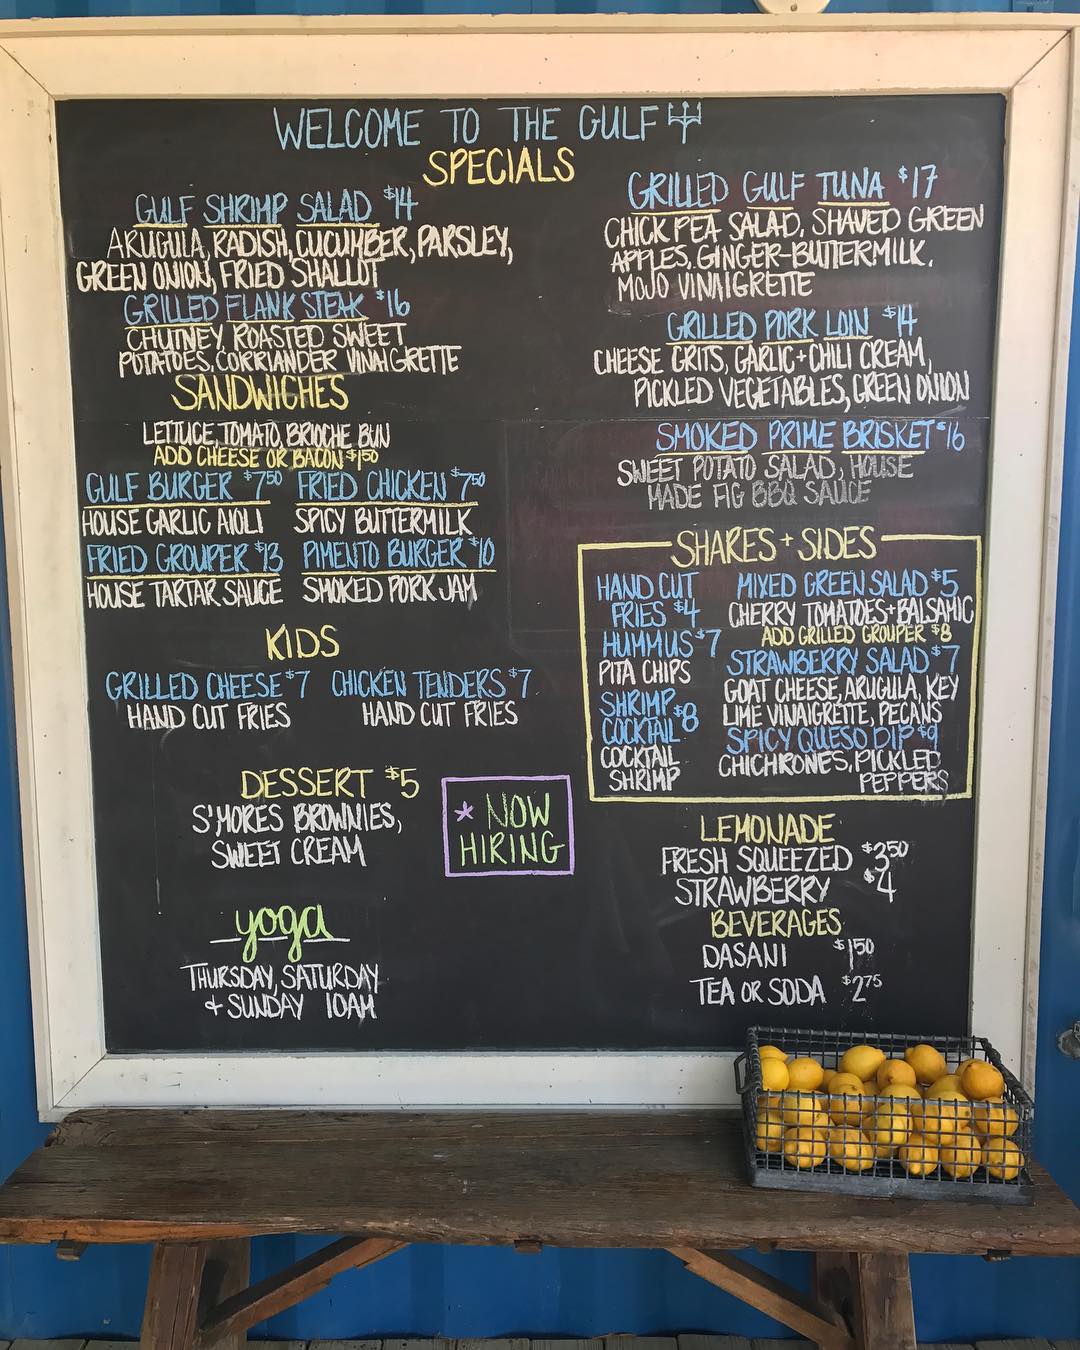 WELCOME TO THE GULF
SPECIALS
GULF SHRIMP SALAD $14
ARUGULA, RADISH, CUCUMBER, PARSLEY,
GREEN ONION, FRIED SHALLOT
GRILLED FLANK STEAK $16
CHUTNEY, ROASTED SWEET
POTATOES, CORRIANDER VINAIGRETTE
SANDWICHES
LETTUCE, TOMATO, BRIOCHE BUN
ADD CHEESE OR BACON $1.50
GULF BURGER $7.50 FRIED CHICKEN $7.50
HOUSE GARLIC AIOLI SPICY BUTTERMILK
FRIED GROUPER $13 PIMENTO BURGER $10
HOUSE TARTAR SAUCE SMOKED PORK JAM
KIDS
GRILLED CHEESE $7 CHICKEN TENDERS $7
HAND CUT FRIES HAND CUT FRIES
DESSERT $5
S'MORES BROWNIES,
SWEET CREAM
* NOW
HIRING
yoga
THURSDAY, SATURDAY
& SUNDAY 10AM
GRILLED GULF TUNA $17
CHICK PEA SALAD, SHAVED GREEN
APPLES, GINGER-BUTTERMILK,
MOJO VINAIGRETTE
GRILLED PORK LOIN $14
CHEESE GRITS, GARLIC + CHILI CREAM,
PICKLED VEGETABLES, GREEN ONION
SMOKED PRIME BRISKET $16
SWEET POTATO SALAD, HOUSE
MADE FIG BBQ SAUCE
SHARES + SIDES
HAND CUT
FRIES $4
HUMMUS $7
PITA CHIPS
SHRIMP
COCKTAIL $8
COCKTAIL
SHRIMP
MIXED GREEN SALAD $5
CHERRY TOMATOES + BALSAMIC
ADD GRILLED GROUPER $8
STRAWBERRY SALAD $7
GOAT CHEESE, ARUGULA, KEY
LIME VINAIGRETTE, PECANS
SPICY QUESO DIP $9
CHICHRONES, PICKLED
PEPPERS
LEMONADE
FRESH SQUEEZED $3.50
STRAWBERRY $4
BEVERAGES
DASANI $1.50
TEA OR SODA $2.75